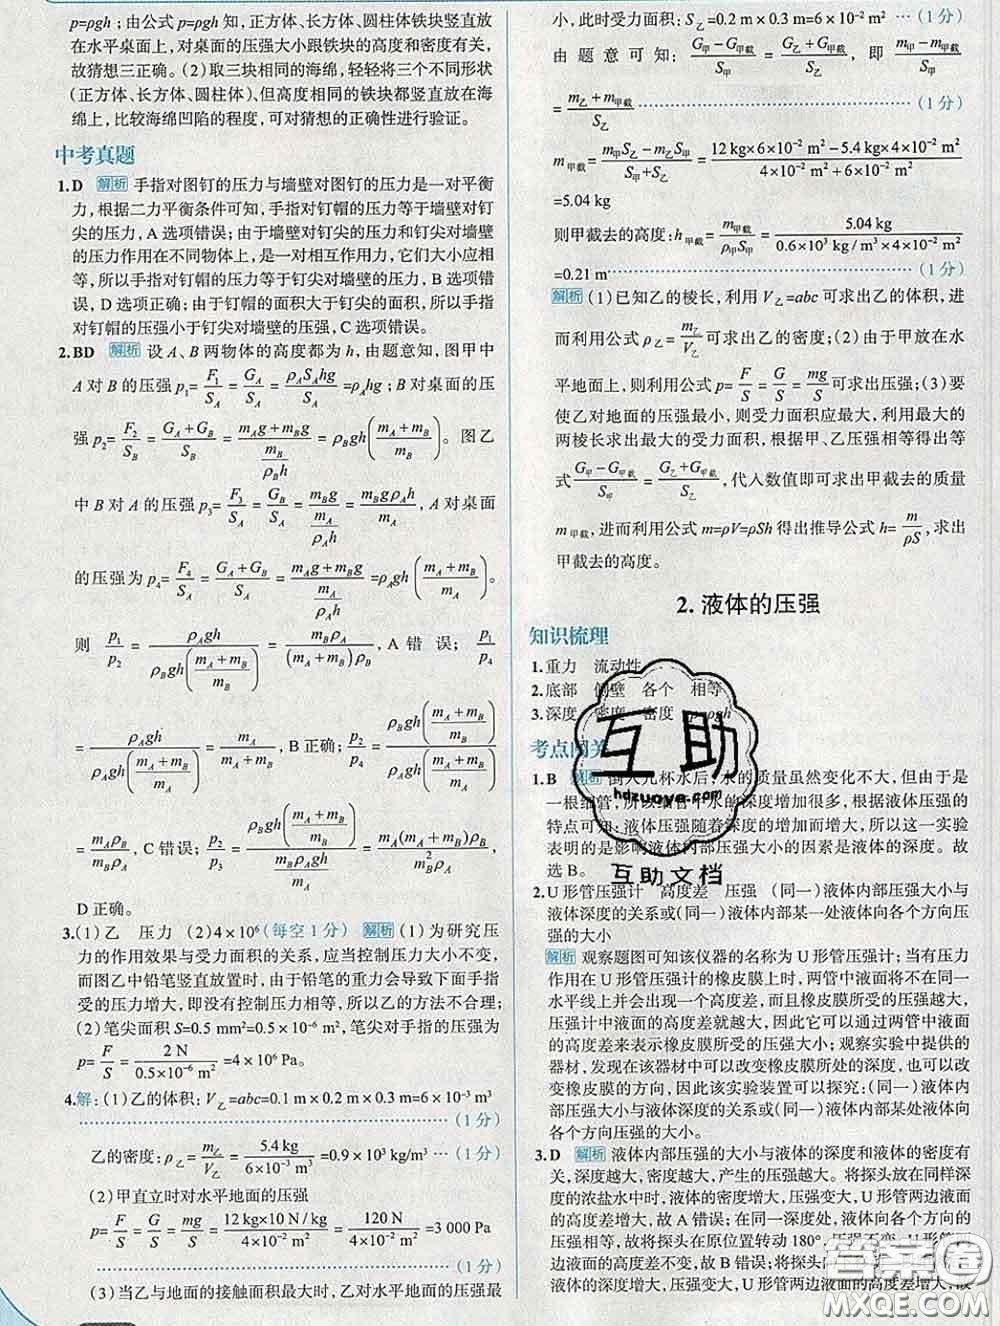 p=ρgh；由公式 p=ρgh 知，正方体、长方体、圆柱体铁块竖直放
在水平桌面上，对桌面的压强大小跟铁块的高度和密度有关，
故猜想三正确。(2)取三块相同的海绵，轻轻将三个不同形状
(正方体、长方体、圆柱体)、但高度相同的铁块都竖直放在海
绵上，比较海绵凹陷的程度，可对猜想的正确性进行验证。
中考真题
1.D 解析 手指对图钉的压力与墙壁对图钉的压力是一对平衡
力，根据二力平衡条件可知，手指对钉帽的压力等于墙壁对钉
尖的压力，A 选项错误；由于墙壁对钉尖的压力和钉尖对墙壁
的压力作用在不同物体上，是一对相互作用力，它们大小应相
等，所以手指对钉帽的压力等于钉尖对墙壁的压力，B 选项错
误，D 选项正确；由于钉帽的面积大于钉尖的面积，所以手指
对钉帽的压强小于钉尖对墙壁的压强，C 选项错误。
2.BD 解析 设 A、B 两物体的高度都为 h，由题意知，图甲中
A 对 B 的压强 p₁=F₁/S_A=G_A/S_A=ρ_A S_A hg/S_A=ρ_A hg；B 对桌面的压
强 p₂=F₂/S_B=(G_A+G_B)/S_B=(m_A g+m_B g)/(m_B/(ρ_B h))=ρ_B gh((m_A+m_B)/m_B)。图乙
中 B 对 A 的压强 p₃=F₃/S_A=G_B/S_A=m_B g/(m_A/(ρ_A h))=m_B gρ_A h/m_A，A 对桌面
的压强为 p₄=F₄/S_A=(G_A+G_B)/S_A=(m_A g+m_B g)/(m_A/(ρ_A h))=ρ_A gh((m_A+m_B)/m_A)。
则 p₁/p₂=ρ_A gh/(ρ_B gh((m_A+m_B)/m_B))=m_B ρ_A/((m_A+m_B)ρ_B)，A 错误；p₁/p₄
=ρ_A gh/(ρ_A gh((m_A+m_B)/m_A))=m_A/(m_A+m_B)，B 正确；p₂/p₄=ρ_B gh((m_A+m_B)/m_B)/(ρ_A gh((m_A+m_B)/m_A))
=m_A ρ_B/(m_B ρ_A)，C 错误；p₂/p₃=ρ_B gh((m_A+m_B)/m_B)/(m_B gρ_A h/m_A)=m_A(m_A+m_B)ρ_B/(m_B²ρ_A)，
D 正确。
3.(1)乙 压力 (2)4×10⁶(每空 1 分) 解析 (1)为研究压
力的作用效果与受力面积的关系，应当控制压力大小不变，
而图乙中铅笔竖直放置时，由于铅笔的重力会导致下面手指
受的压力增大，即没有控制压力相等，所以乙的方法不合理；
(2)笔尖面积 S=0.5 mm²=0.5×10⁻⁶ m²，笔尖对手指的压强为
p=F/S=2 N/(0.5×10⁻⁶ m²)=4×10⁶ Pa。
4.解：(1)乙的体积：V乙=abc=0.1 m×0.2 m×0.3 m=6×10⁻³ m³
(1 分)
乙的密度：ρ乙=m乙/V乙=5.4 kg/(6×10⁻³ m³)=0.9×10³ kg/m³ …(1 分)
(2)甲直立时对水平地面的压强
p=F/S=G/S=mg/S=12 kg×10 N/kg/(4×10⁻² m²)=120 N/(4×10⁻² m²)=3 000 Pa
(1 分)
(3)当乙与地面的接触面积最大时，乙对水平地面的压强最
小，此时受力面积：S乙=0.2 m×0.3 m=6×10⁻² m² …(1 分)
由题意可知：(G甲-G甲截)/S甲=(G乙+G甲截)/S乙，即 (m甲-m甲截)/S甲
=(m乙+m甲截)/S乙 (1 分)
m甲截=(m甲S乙-m乙S甲)/(S乙+S甲)=(12 kg×6×10⁻² m²-5.4 kg×4×10⁻² m²)/(4×10⁻² m²+6×10⁻² m²)
=5.04 kg
则甲截去的高度：h甲截=m甲截/(ρ甲S甲)=5.04 kg/(0.6×10³ kg/m³×4×10⁻² m²)
=0.21 m (1 分)
解析 (1)已知乙的棱长，利用 V乙=abc 可求出乙的体积，进
而利用公式 ρ乙=m乙/V乙 可求出乙的密度；(2)由于甲放在水
平地面上，则利用公式 p=F/S=G/S=mg/S 可求出压强；(3)要
使乙对地面的压强最小，则受力面积应最大，利用最大的
两棱长求出最大的受力面积，根据甲、乙压强相等得出等
式(G甲-G甲截)/S甲=(G乙+G甲截)/S乙，代人数值即可求出甲截去的质量
m甲截，进而利用公式 m=ρV=ρSh 得出推导公式 h=m/(ρS)，求出
甲截去的高度。
2. 液体的压强
知识梳理
1.重力 流动性
2.底部 侧壁 各个 相等
3.深度 密度 密度 p=ρgh
考点闯关
1.B 解析 倒入几杯水后，水的质量虽然变化不大，但由于是
一根细管，所以细管中水的深度增加很多，根据液体压强的
特点可知：液体压强随着深度的增加而增大，所以这一实验
表明的是影响液体内部压强大小的因素是液体的深度。故
选 B。
2.U 形管压强计 高度差 压强 (同一)液体内部压强大小与
液体深度的关系或(同一)液体内部某一处液体向各个方向压
强的大小
解析 观察题图可知该仪器的名称为 U 形管压强计；当有压力
作用在 U 形管压强计的橡皮膜上时，两管中液面将不在同一
水平线上并会出现一个高度差，而且橡皮膜所受的压强越大，
压强计中液面的高度差就越大，因此它可以通过两管中液面
的高度差来表示橡皮膜所受的压强大小；观察实验中提供的
器材，发现在该器材中可以改变橡皮膜所处的深度，也可以改
变橡皮膜的方向，因此该实验装置可以探究：(同一)液体内
部压强大小与液体深度的关系或(同一)液体内部液体向各
个方向压强的大小。
3.D 解析 液体内部压强的大小与液体的深度和液体的密度有
关，深度越大，密度越大，产生的压强越大。将探头放在同样深
度的浓盐水中时，液体的密度增大，压强变大，U 形管两边液面
的高度差增大，故 A 错误；在同一深度处，液体向各个方向的
压强相等，故将探头在原位置转动 180°，压强不变，U 形管两
边液面的高度差不变，故 B 错误；将探头
液体的深度减小，压强减小，U 形管两边液面的高度差
互助
hdzuoye.com
互助文档
答案圈
MXQE.COM